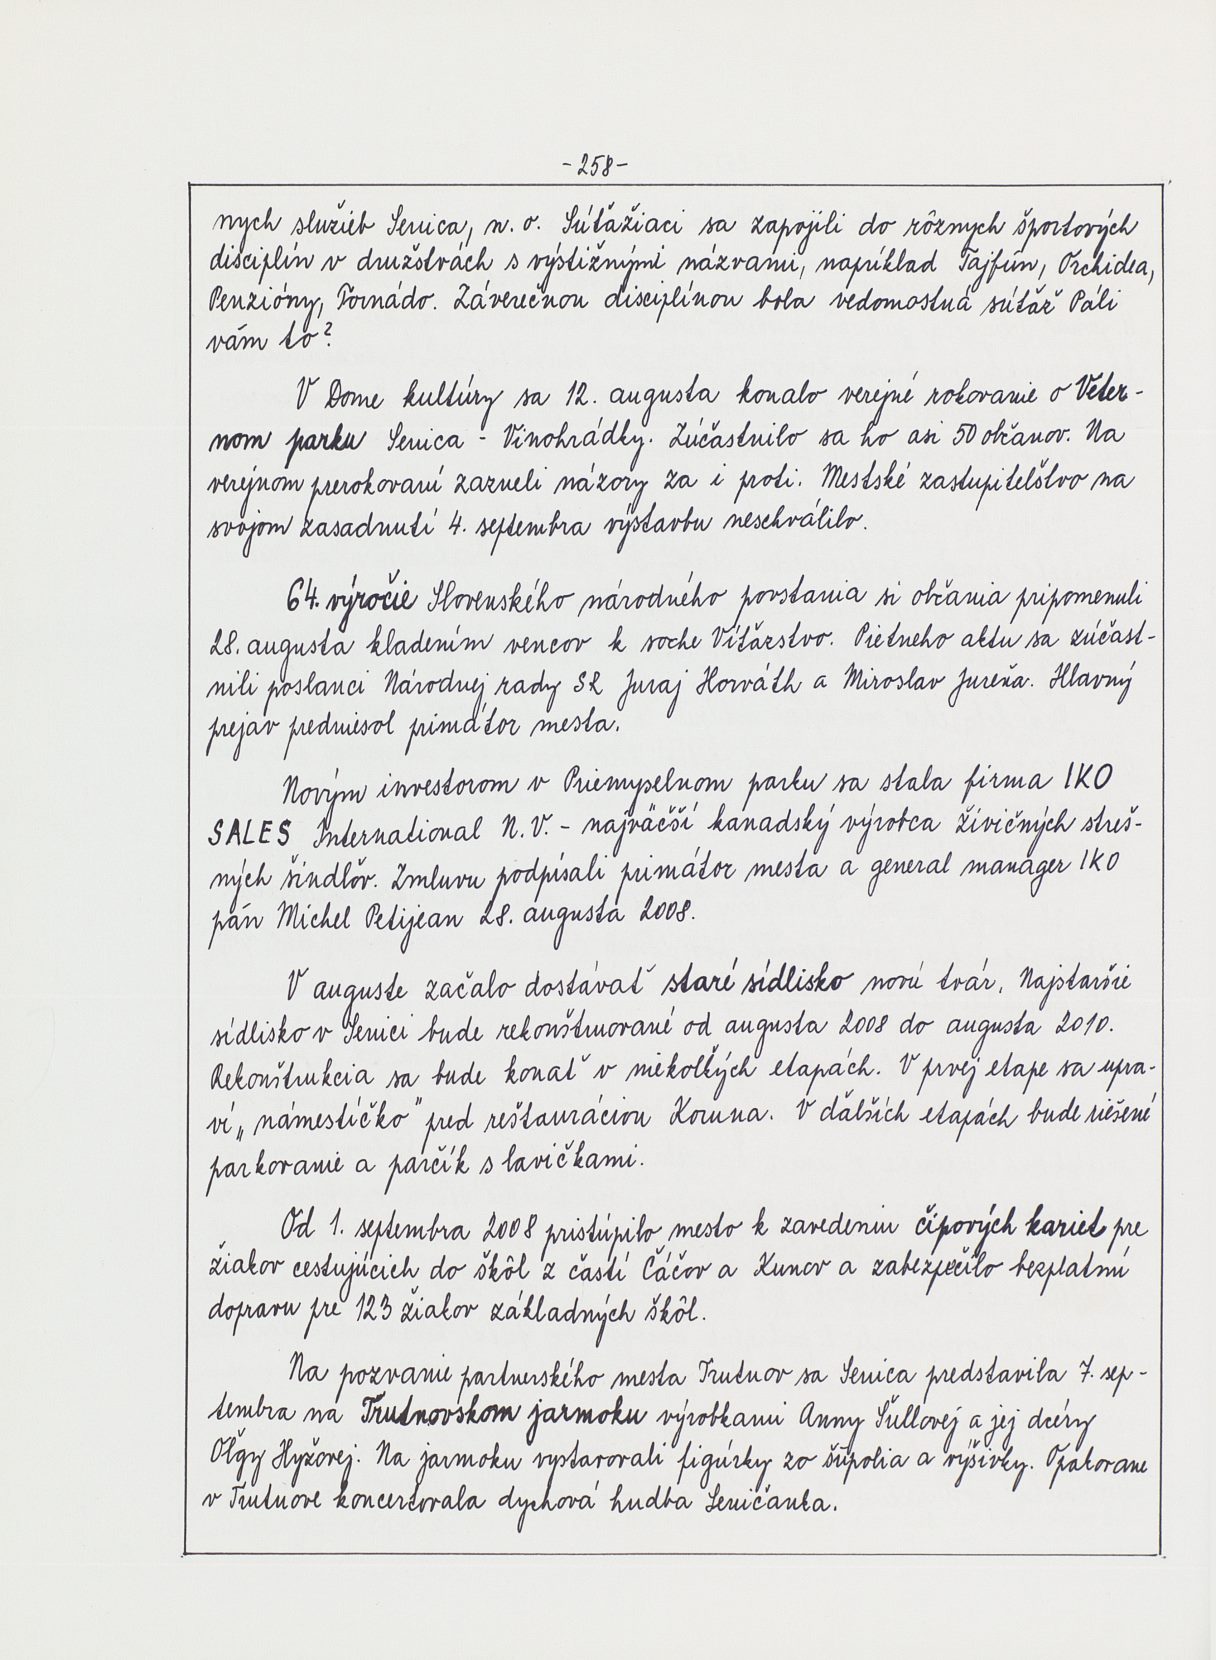 -258-
nych služieb Senica, n. o. Súťažiaci sa zapojili do rôznych športových
disciplín v družstvách s výstižnými názvami, napríklad Tajfún, Orchidea,
Penzióny, Tornádo. Záverečnou disciplínou bola vedomostná súťaž Páli
vám to?
V Dome kultúry sa 12. augusta konalo verejné rokovanie o Veter-
nom parku Senica - Vinohrádky. Zúčastnilo sa ho asi 50 občanov. Na
verejnom prerokovaní zazneli názory za i proti. Mestské zastupiteľstvo na
svojom zasadnutí 4. septembra výstavbu neschválilo.
64. výročie Slovenského národného povstania si občania pripomenuli
28. augusta kladením vencov k soche Víťazstvo. Pietneho aktu sa zúčast-
nili poslanci Národnej rady SR Juraj Horváth a Miroslav Jureňa. Hlavný
prejav predniesol primátor mesta.
Novým investorom v Priemyselnom parku sa stala firma IKO
SALES International N.V. - najväčší kanadský výrobca živičných streš-
ných šindľov. Zmluvu podpísali primátor mesta a general manager IKO
pán Michel Petijean 28. augusta 2008.
V auguste začalo dostávať staré sídlisko novú tvár. Najstaršie
sídlisko v Senici bude rekonštruované od augusta 2008 do augusta 2010.
Rekonštrukcia sa bude konať v niekoľkých etapách. V prvej etape sa upra-
ví „námestíčko" pred reštauráciou Koruna. V ďalších etapách bude riešené
parkovanie a parčík s lavičkami.
Od 1. septembra 2008 pristúpilo mesto k zavedeniu čipových kariet pre
žiakov cestujúcich do škôl z častí Čáčov a Kunov a zabezpečilo bezplatnú
dopravu pre 123 žiakov základných škôl.
Na pozvanie partnerského mesta Trutnov sa Senica predstavila 7. sep-
tembra na Trutnovskom jarmoku výrobkami Anny Šullovej a jej dcéry
Oľgy Hyžovej. Na jarmoku vystavovali figúrky zo šúpolia a výšivky. Opakovane
v Trutnove koncertovala dychová hudba Seničanka.